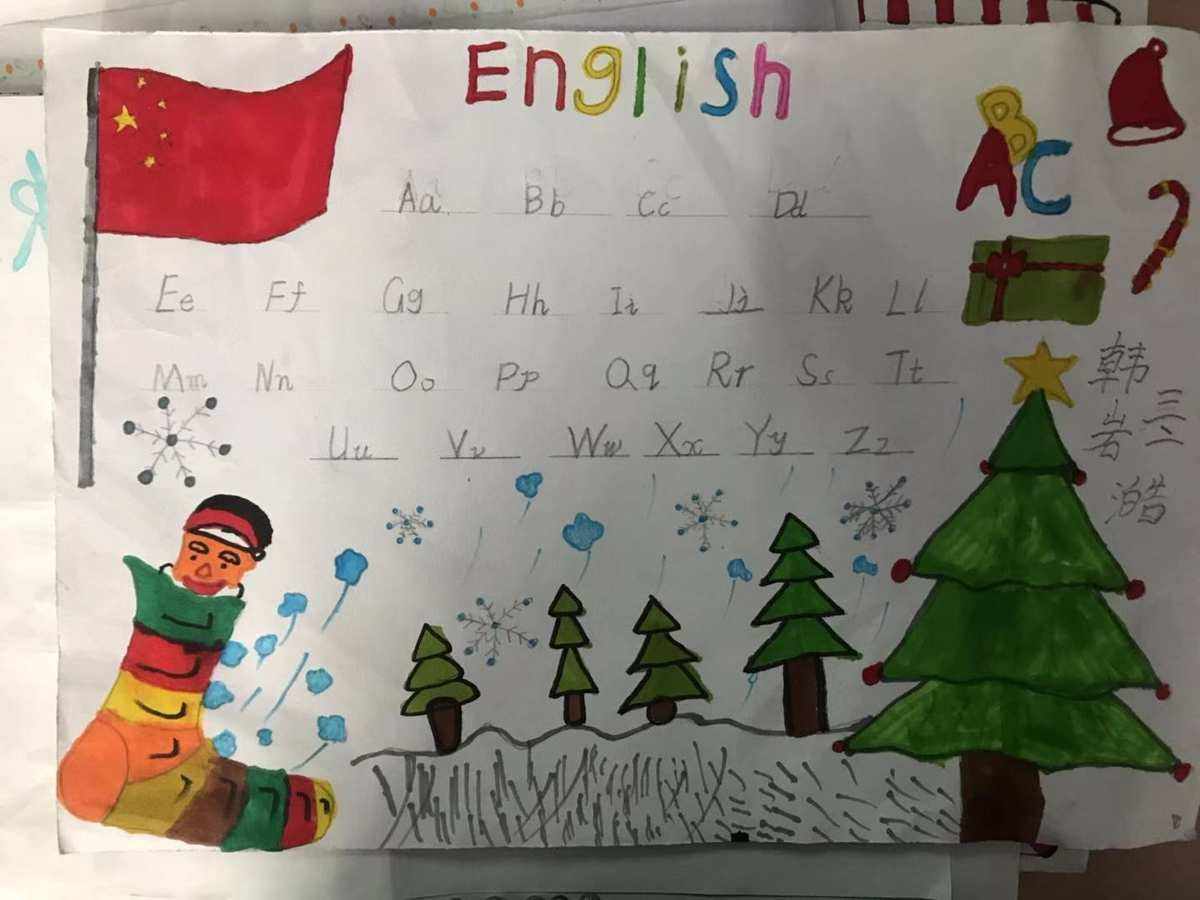 English
ABC
Aa Bb Cc Dd
Ee Ff Gg Hh Ii Jj Kk Ll
Mm Nn Oo Pp Qq Rr Ss Tt
Uu Vv Ww Xx Yy Zz
韩岩澔
三二